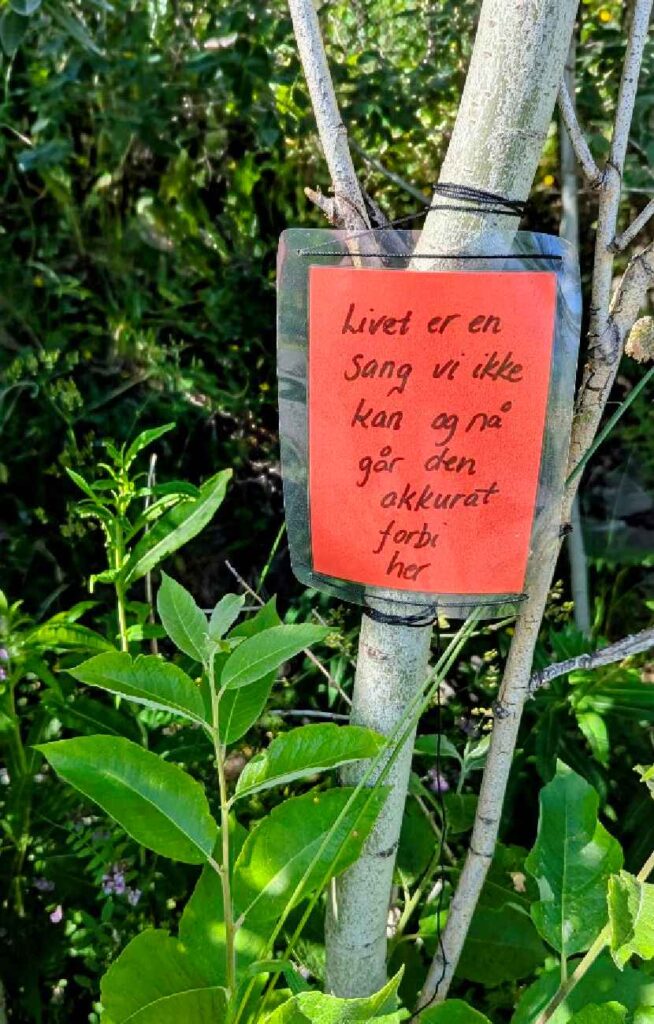 Livet er en
sang vi ikke
kan og nå
går den
akkurat
forbi
her